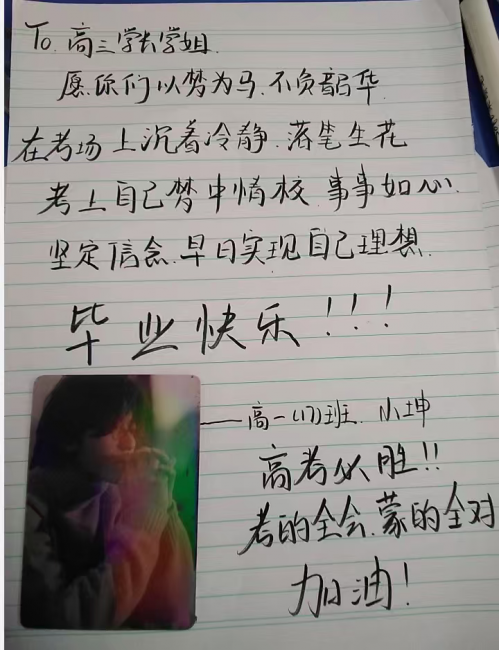 To 高三学长学姐
愿你们以梦为马.不负韶华
在考场上沉着冷静.落笔生花
考上自己梦中情校 事事如心.
坚定信念.早日实现自己理想.
毕业快乐!!!
——高一(17)班.小坤
高考必胜!!
考的全会.蒙的全对
加油!